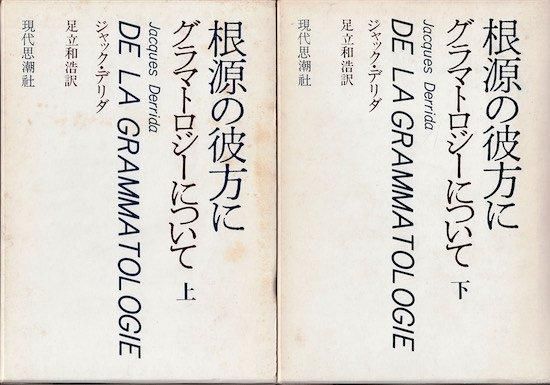 根源の彼方に
グラマトロジーについて 上
DE LA GRAMMATOLOGIE
Jacques Derrida
ジャック・デリダ
足立和浩訳
現代思潮社
根源の彼方に
グラマトロジーについて 下
DE LA GRAMMATOLOGIE
Jacques Derrida
ジャック・デリダ
足立和浩訳
現代思潮社